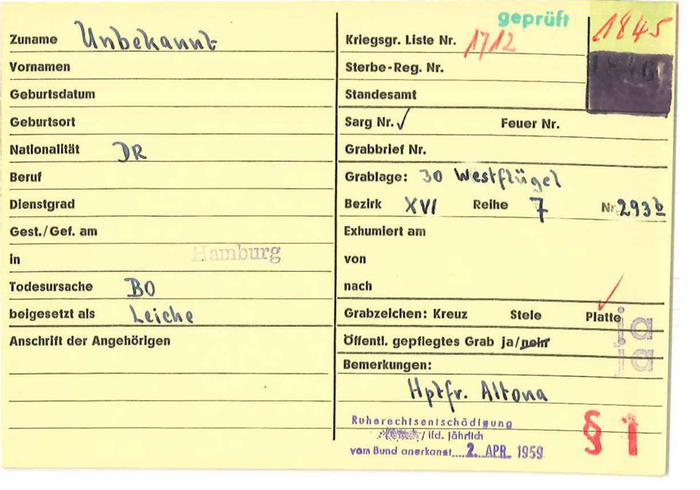 geprüft
1845
Zuname Unbekannt
Vornamen
Geburtsdatum
Geburtsort
Nationalität DR
Beruf
Dienstgrad
Gest./Gef. am
in Hamburg
Todesursache BO
beigesetzt als Leiche
Anschrift der Angehörigen
Kriegsgr. Liste Nr. 1712
Sterbe-Reg. Nr.
Standesamt
Sarg Nr. √ Feuer Nr.
Grabbrief Nr.
Grablage: 30 Westflügel
Bezirk XVI Reihe 7 Nr. 293b
Exhumiert am
von
nach
Grabzeichen: Kreuz Stele Platte
ja
Öffentl. gepflegtes Grab ja/nein
ja
Bemerkungen:
Hptfr. Altona
Ruherechtsentschädigung
/ lfd. jährlich
vom Bund anerkannt 2. APR. 1959
§ 1